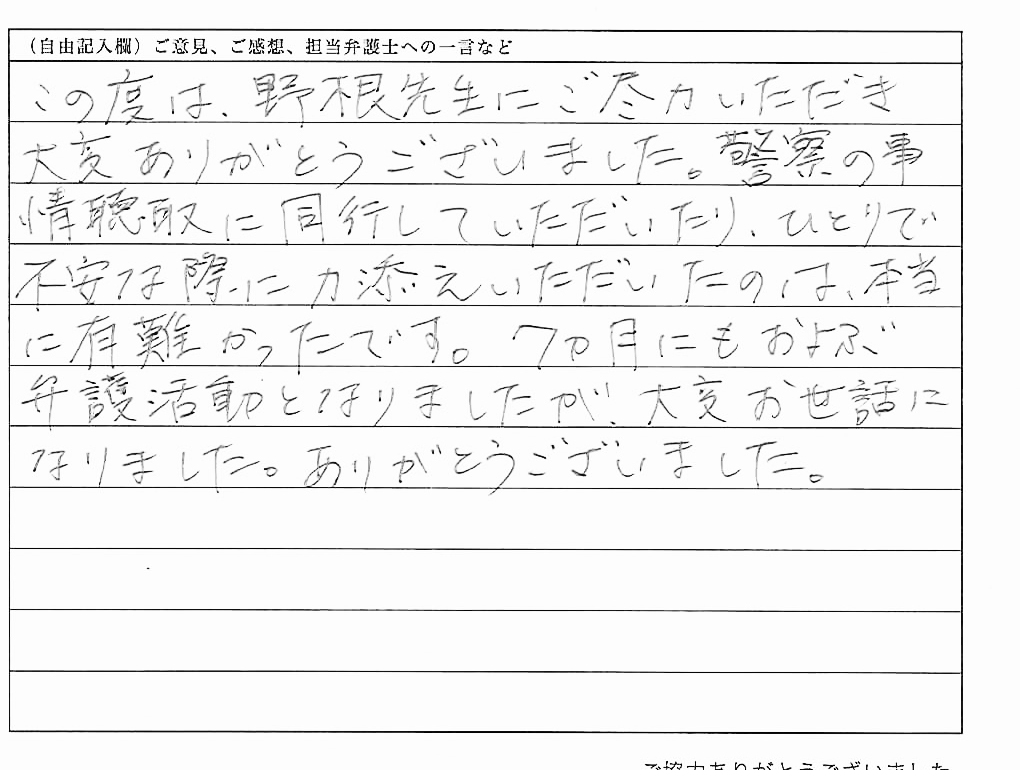 （自由記入欄）ご意見、ご感想、担当弁護士への一言など
この度は、野根先生にご尽力いただき
大変ありがとうございました。警察の事
情聴取に同行していただいたり、ひとりで
不安な際に力添えいただいたのは、本当
に有難かったです。7ヵ月にもおよぶ
弁護活動となりましたが、大変お世話に
なりました。ありがとうございました。
ご協力ありがとうございました